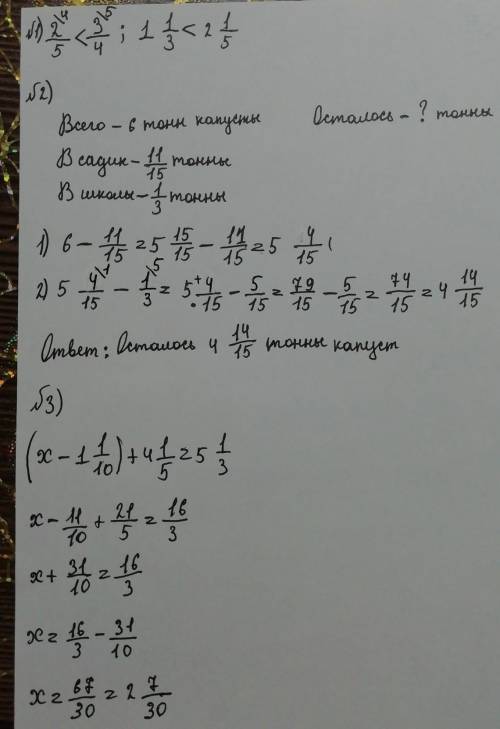 №1) 2\4/5 < 3\5/4 ; 1 1/3 < 2 1/5
№2)
Всего – 6 тонн капусты Осталось – ? тонны
В садик – 11/15 тонны
В школы – 1/3 тонны
1) 6 – 11/15 = 5 15/15 – 11/15 = 5 4/15 (
2) 5 4\1/15 – 1\5/3 = 5 + 4/15 – 5/15 = 79/15 – 5/15 = 74/15 = 4 14/15
Ответ: Осталось 4 14/15 тонны капуст
№3)
(x – 1 1/10) + 4 1/5 = 5 1/3
x – 11/10 + 21/5 = 16/3
x + 31/10 = 16/3
x = 16/3 – 31/10
x = 67/30 = 2 7/30